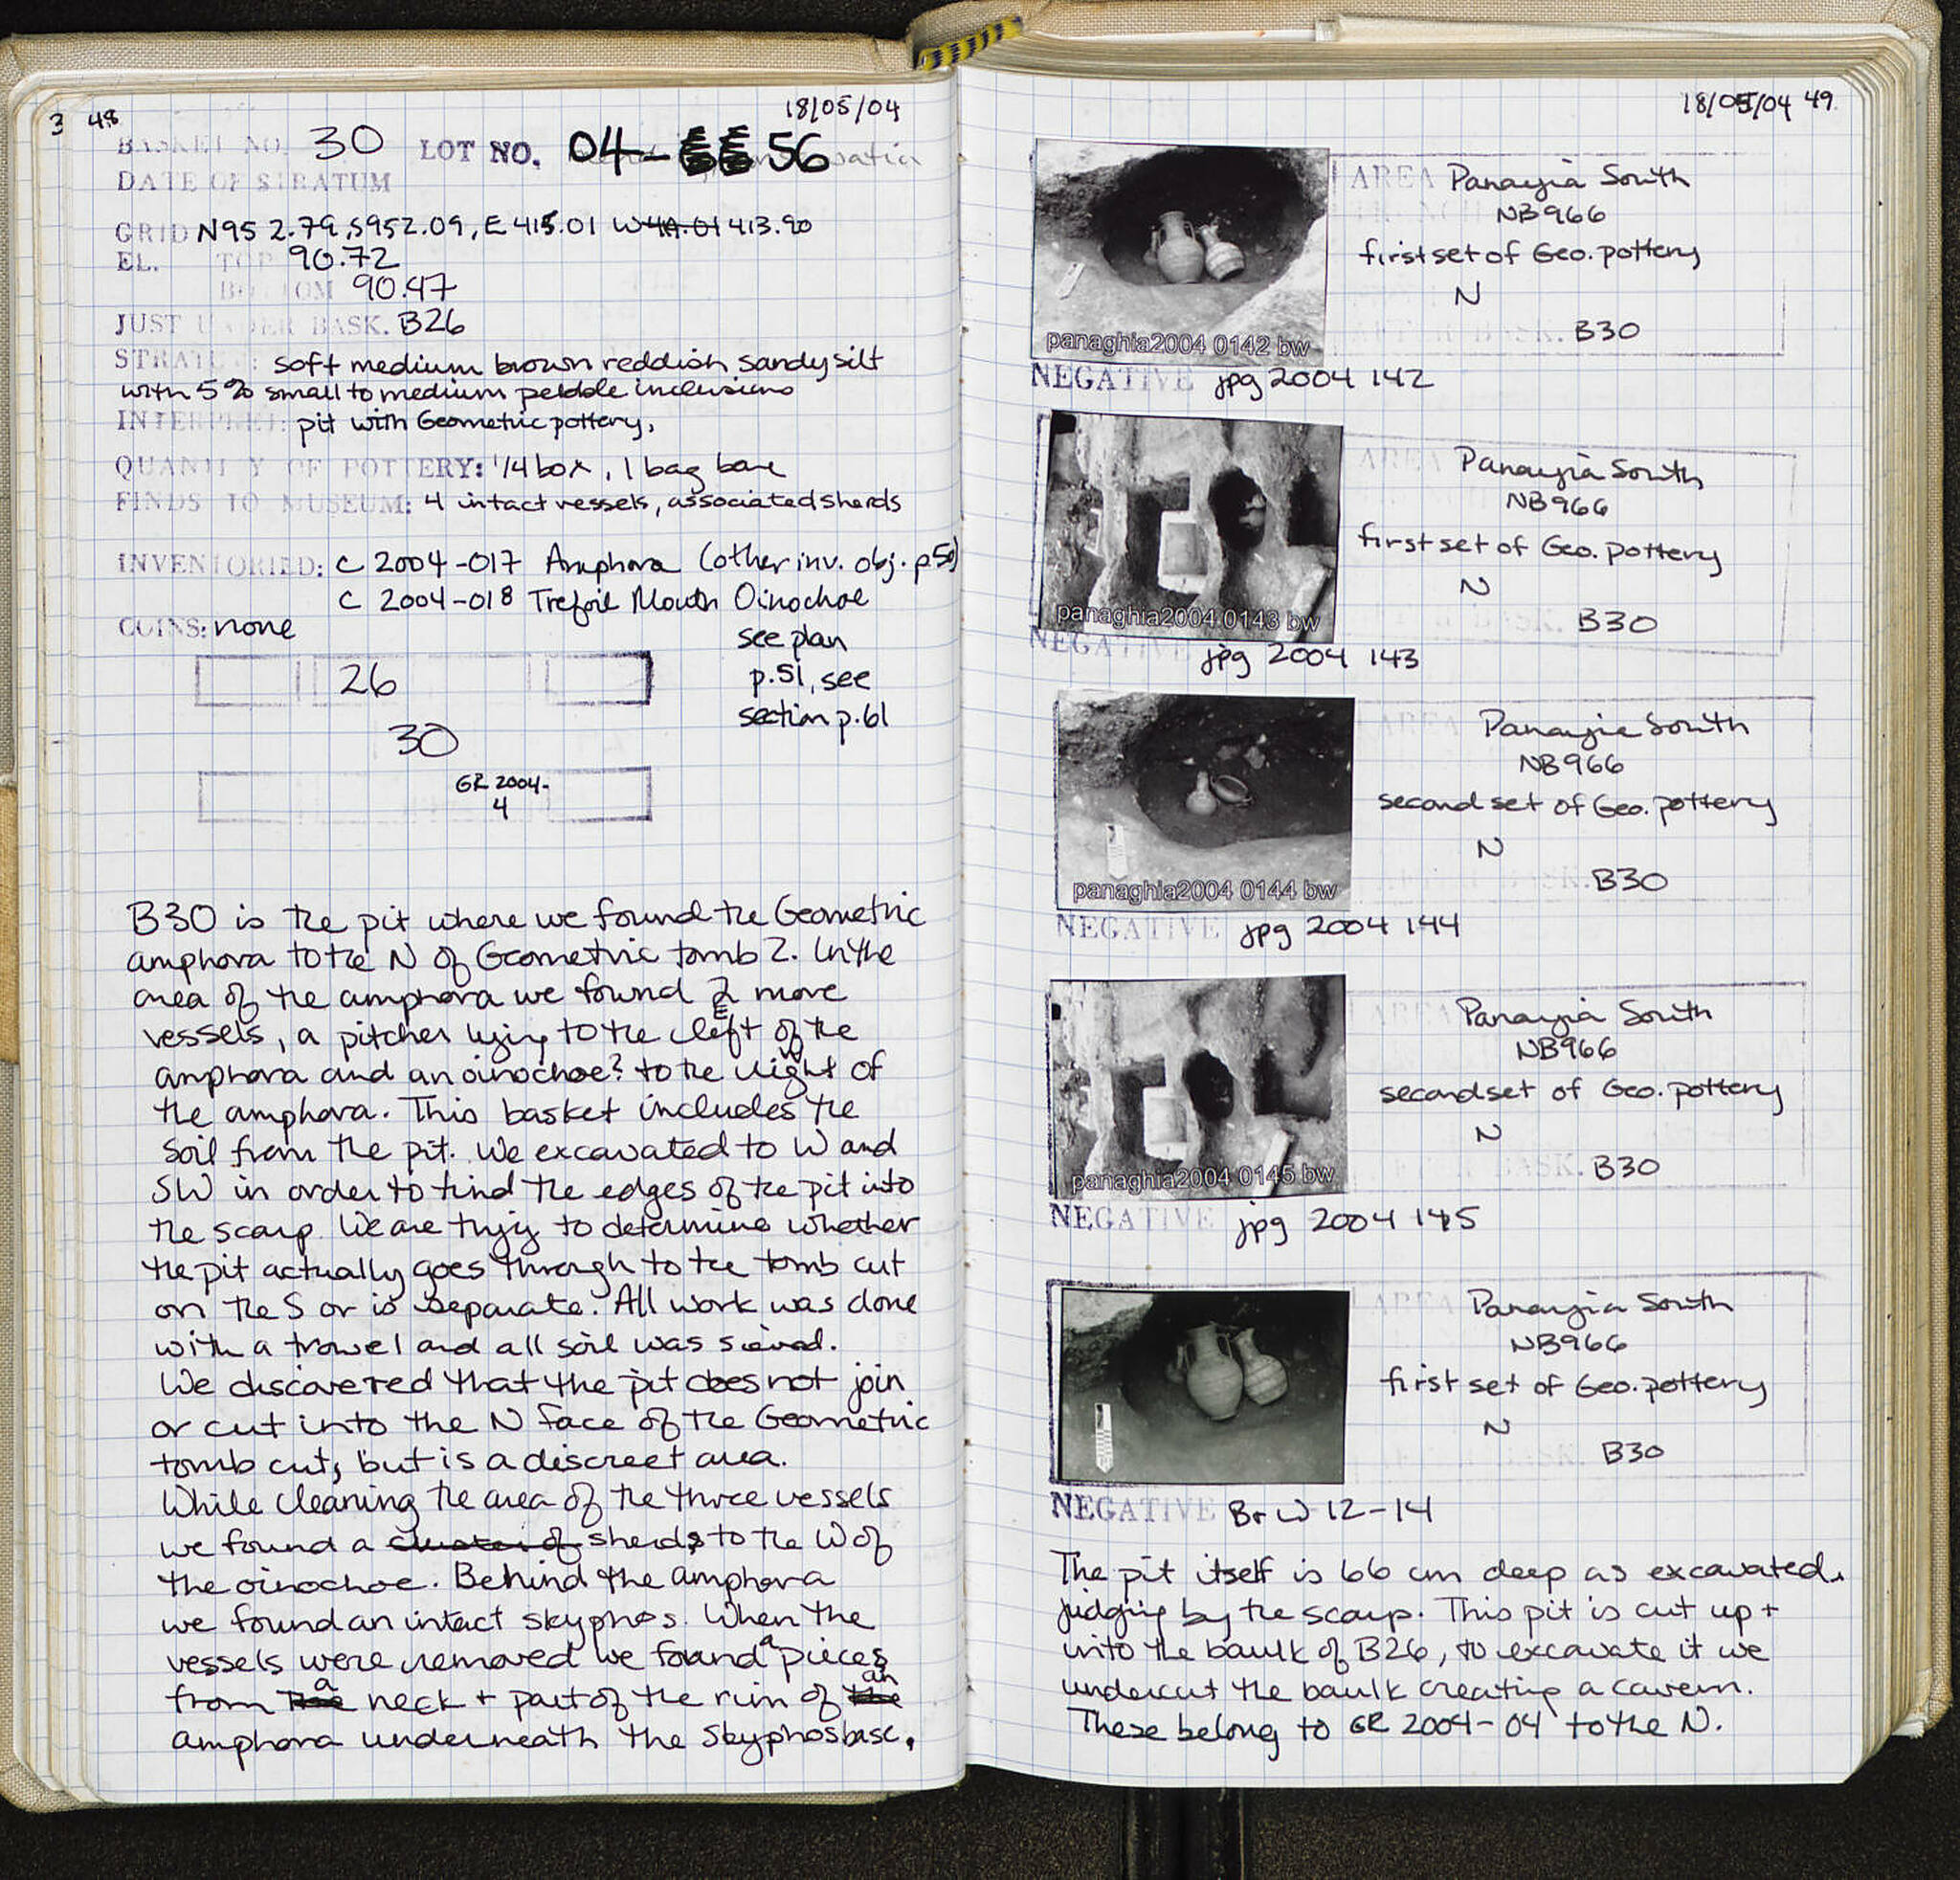 3 48
18/05/04
BASKET NO. 30 LOT NO. 04-56
DATE OF STRATUM
GRID N95 2.79, S952.09, E 415.01 W 411.01 413.90
EL. TOP 90.72
BOTTOM 90.47
JUST UNDER BASK. B26
STRATUM: soft medium brown reddish sandy silt
with 5% small to medium pebble inclusions
INTERPRET: pit with Geometric pottery,
QUANTITY OF POTTERY: 1/4 box, 1 bag bone
FINDS TO MUSEUM: 4 intact vessels, associated sherds
INVENTORIED: C 2004-017 Amphora (other inv. obj. p.50)
C 2004-018 Trefoil Mouth Oinochoe
COINS: none
see plan
p.51, see
section p.61
26
30
GR 2004-
4
B30 is the pit where we found the Geometric
amphora to the N of Geometric tomb 2. In the
area of the amphora we found 2 more
vessels, a pitcher lying to the left of the
E
amphora and an oinochoe? to the right of
W
the amphora. This basket includes the
soil from the pit. We excavated to W and
SW in order to find the edges of the pit into
the scarp. We are tryig to determine whether
the pit actually goes through to the tomb cut
on the S or is separate. All work was done
with a trowel and all soil was sieved.
We discovered that the pit does not join
or cut into the N face of the Geometric
tomb cut, but is a discreet area.
While cleaning the area of the three vessels
we found a cluster of sherds to the W of
the oinochoe. Behind the amphora
we found an intact skyphos. When the
vessels were removed we found a pieces
from the a neck + part of the rim of the an
amphora underneath the skyphos base.
18/05/04 49
AREA Panayia South
NB966
first set of Geo. pottery
N
B30
panaghia2004 0142 bw
NEGATIVE jpg 2004 142
AREA Panayia South
NB966
first set of Geo. pottery
N
BASK. B30
panaghia2004 0143 bw
NEGATIVE jpg 2004 143
AREA Panayia South
NB966
second set of Geo. pottery
N
BASK. B30
panaghia2004 0144 bw
NEGATIVE jpg 2004 144
AREA Panayia South
NB966
second set of Geo. pottery
N
BASK. B30
panaghia2004 0145 bw
NEGATIVE jpg 2004 145
AREA Panayia South
NB966
first set of Geo. pottery
N
BASK. B30
NEGATIVE B+W 12-14
The pit itself is 66 cm deep as excavated,
judging by the scarp. This pit is cut up +
into the baulk of B26, to excavate it we
undercut the baulk creating a cavern.
These belong to GR 2004-04 to the N.